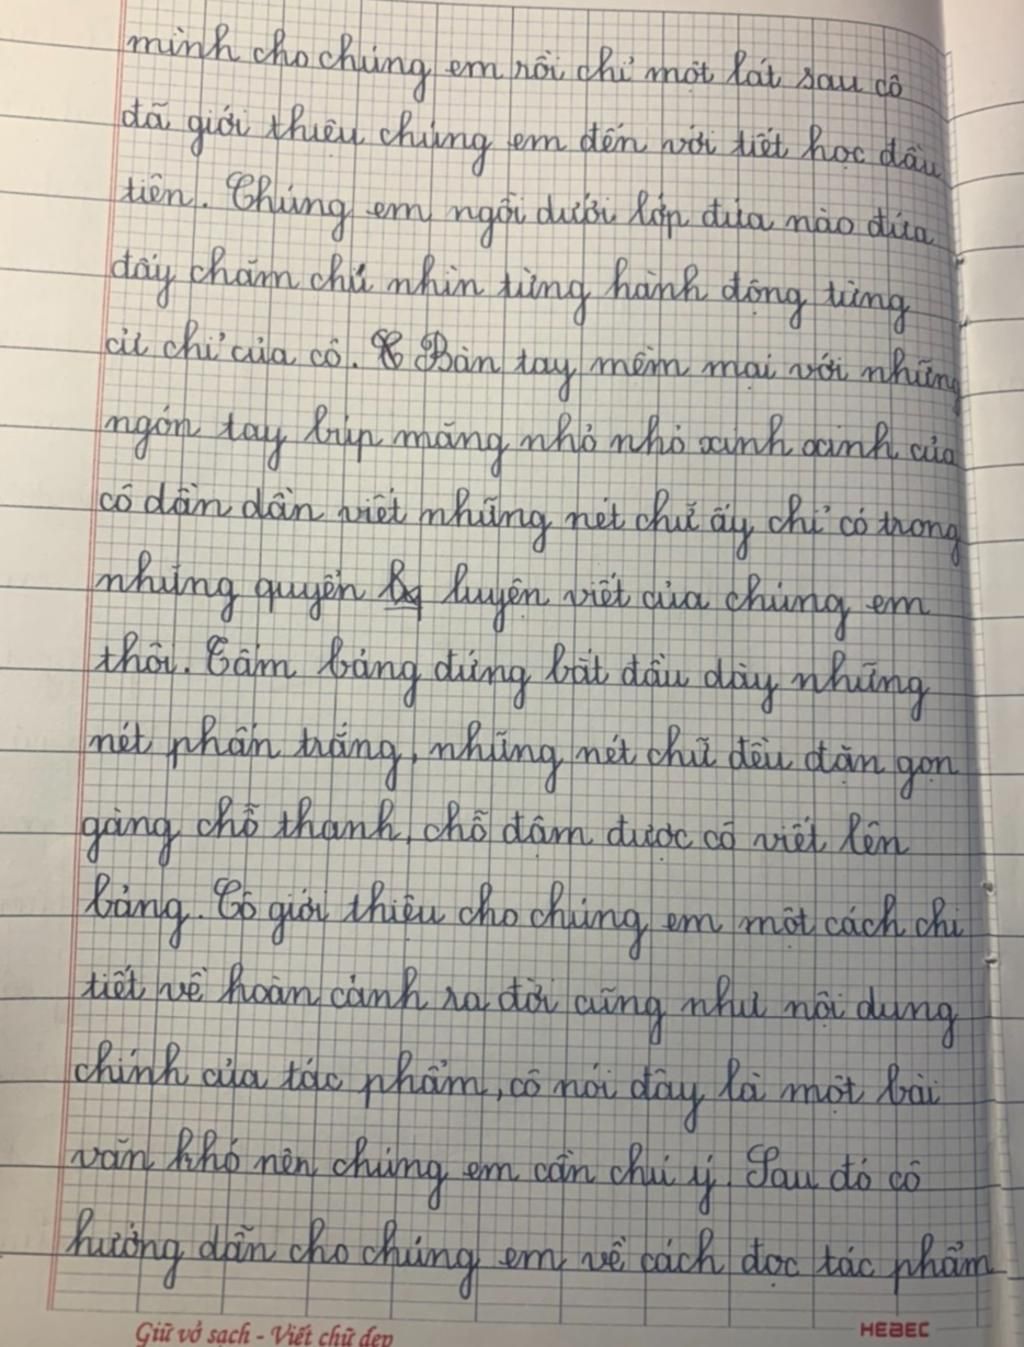 mình cho chúng em rồi chỉ một lát sau cô
đã giới thiệu chúng em đến với tiết học đầu
tiên. Chúng em ngồi dưới lớp đứa nào đứa
đấy chăm chú nhìn từng hành động từng
cử chỉ của cô. Bàn tay mềm mại với những
ngón tay búp măng nhỏ nhỏ xinh xinh của
cô dần dần viết những nét chữ ấy chỉ có trong
những quyển luyện viết của chúng em
thôi. Tấm bảng đứng bắt đầu dày những
nét phấn trắng, những nét chữ đều đặn gọn
gàng chỗ thanh, chỗ đậm được cô viết lên
bảng. Cô giới thiệu cho chúng em một cách chi
tiết về hoàn cảnh ra đời cũng như nội dung
chính của tác phẩm, cô nói đây là một bài
văn khó nên chúng em cần chú ý. Sau đó cô
hướng dẫn cho chúng em về cách đọc tác phẩm
Giữ vở sạch - Viết chữ đẹp
HEBEC